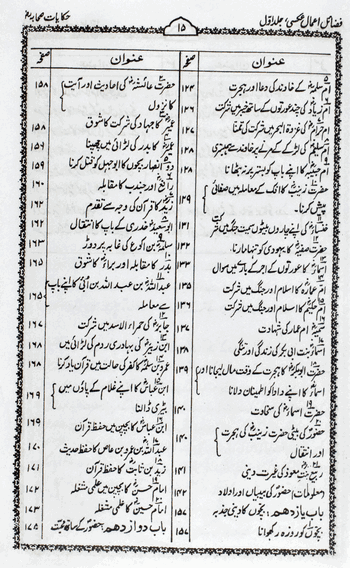 فضائل اعمال عکسی، جلد اول
۱۵
حکایات صحابہؓ
عنوان
صفحہ
ام سلیمؓ کے خاوند کی دعا اور ہجرت
۱۲۴
ام زیادؓ کی چند عورتوں کے ساتھ خیبر میں شرکت
۱۲۶
ام حرامؓ کی غزوۃ البحر میں شرکت کی تمنا
۱۲۷
ام سلیمؓ کی لڑکے کے مرنے پر خاوند سے ہمبستری
۱۲۸
ام حبیبہؓ کا اپنے باپ کو بستر پر نہ بٹھانا
حضرت زینبؓ کا افک کے معاملہ میں صفائی
پیش کرنا۔
۱۲۹
خنساءؓ کی اپنے چاروں بیٹوں سمیت جنگ میں شرکت
حضرت صفیہؓ کا یہودی کو تنہا مارنا
۱۳۲
اسماءؓ کا عورتوں کے اجر کے بارے میں سوال
۱۳۳
ام عمارہؓ کا اسلام اور جنگ میں شرکت
۱۳۵
ام حکیمؓ کا اسلام اور جنگ میں شرکت
۱۳۶
سمیہؓ ام عمار کی شہادت
۱۳۷
اسماءؓ بنت ابی بکر کی زندگی اور تنگی
۱۳۸
حضرت ابوبکرؓ کا ہجرت کے وقت مال لیجانا اور
اسماءؓ کا اپنے دادا کو اطمینان دلانا
۱۳۹
حضرت اسماءؓ کی سخاوت
۱۴۰
حضورؐ کی بیٹی حضرت زینبؓ کی ہجرت
اور انتقال
۱۴۰
ربیعؓ بنت معوذ کی غیرت دینی
۱۴۱
معلومات حضورؐ کی بیبیاں اور اولاد
۱۴۲
باب یازدہم: بچوں کا دینی جذبہ
۱۵۷
بچوں کو روزہ رکھوانا
۱۵۷
عنوان
صفحہ
حضرت عائشہؓ کی احادیث اور آیت
کا نزول
۱۵۸
عمیرؓ کا جہاد کی شرکت کا شوق
۱۵۸
عمیرؓ کا بدر کی لڑائی میں چھپنا
۱۵۹
دو انصار بچوں کا ابوجہل کو قتل کرنا
۱۵۹
رافعؓ اور جندبؓ کا مقابلہ
۱۶۰
زیدؓ کا قرآن کی وجہ سے تقدم
۱۶۲
ابوسعیدؓ خدری کے باپ کا انتقال
۱۶۲
سلمہؓ بن اکوع کی غابہ پر دوڑ
۱۶۳
بدر کا مقابلہ اور براءؓ کا شوق
۱۶۵
عبداللہؓ بن عبداللہ بن ابی کا اپنے باپ
سے معاملہ
۱۶۵
جابرؓ کی حمراء الاسد میں شرکت
۱۶۷
ابن زبیرؓ کی بہادری روم کی لڑائی میں
۱۶۸
عمرو بن سلمہؓ کا کفر کی حالت میں قرآن یاد کرنا
۱۶۸
ابن عباسؓ کا اپنے غلام کے پاؤں میں
بیڑی ڈالنا
۱۶۹
ابن عباسؓ کا بچپن میں حفظ قرآن
۱۶۹
عبداللہ بن عمرو بن عاصؓ کا حفظ حدیث
۱۷۰
زید بن ثابتؓ کا حفظ قرآن
۱۷۱
امام حسنؓ کا بچپن میں علمی مشغلہ
۱۷۲
امام حسینؓ کا علمی مشغلہ
۱۷۳
باب دوازدہم: حضورؐ کے ساتھ محبت
۱۷۵